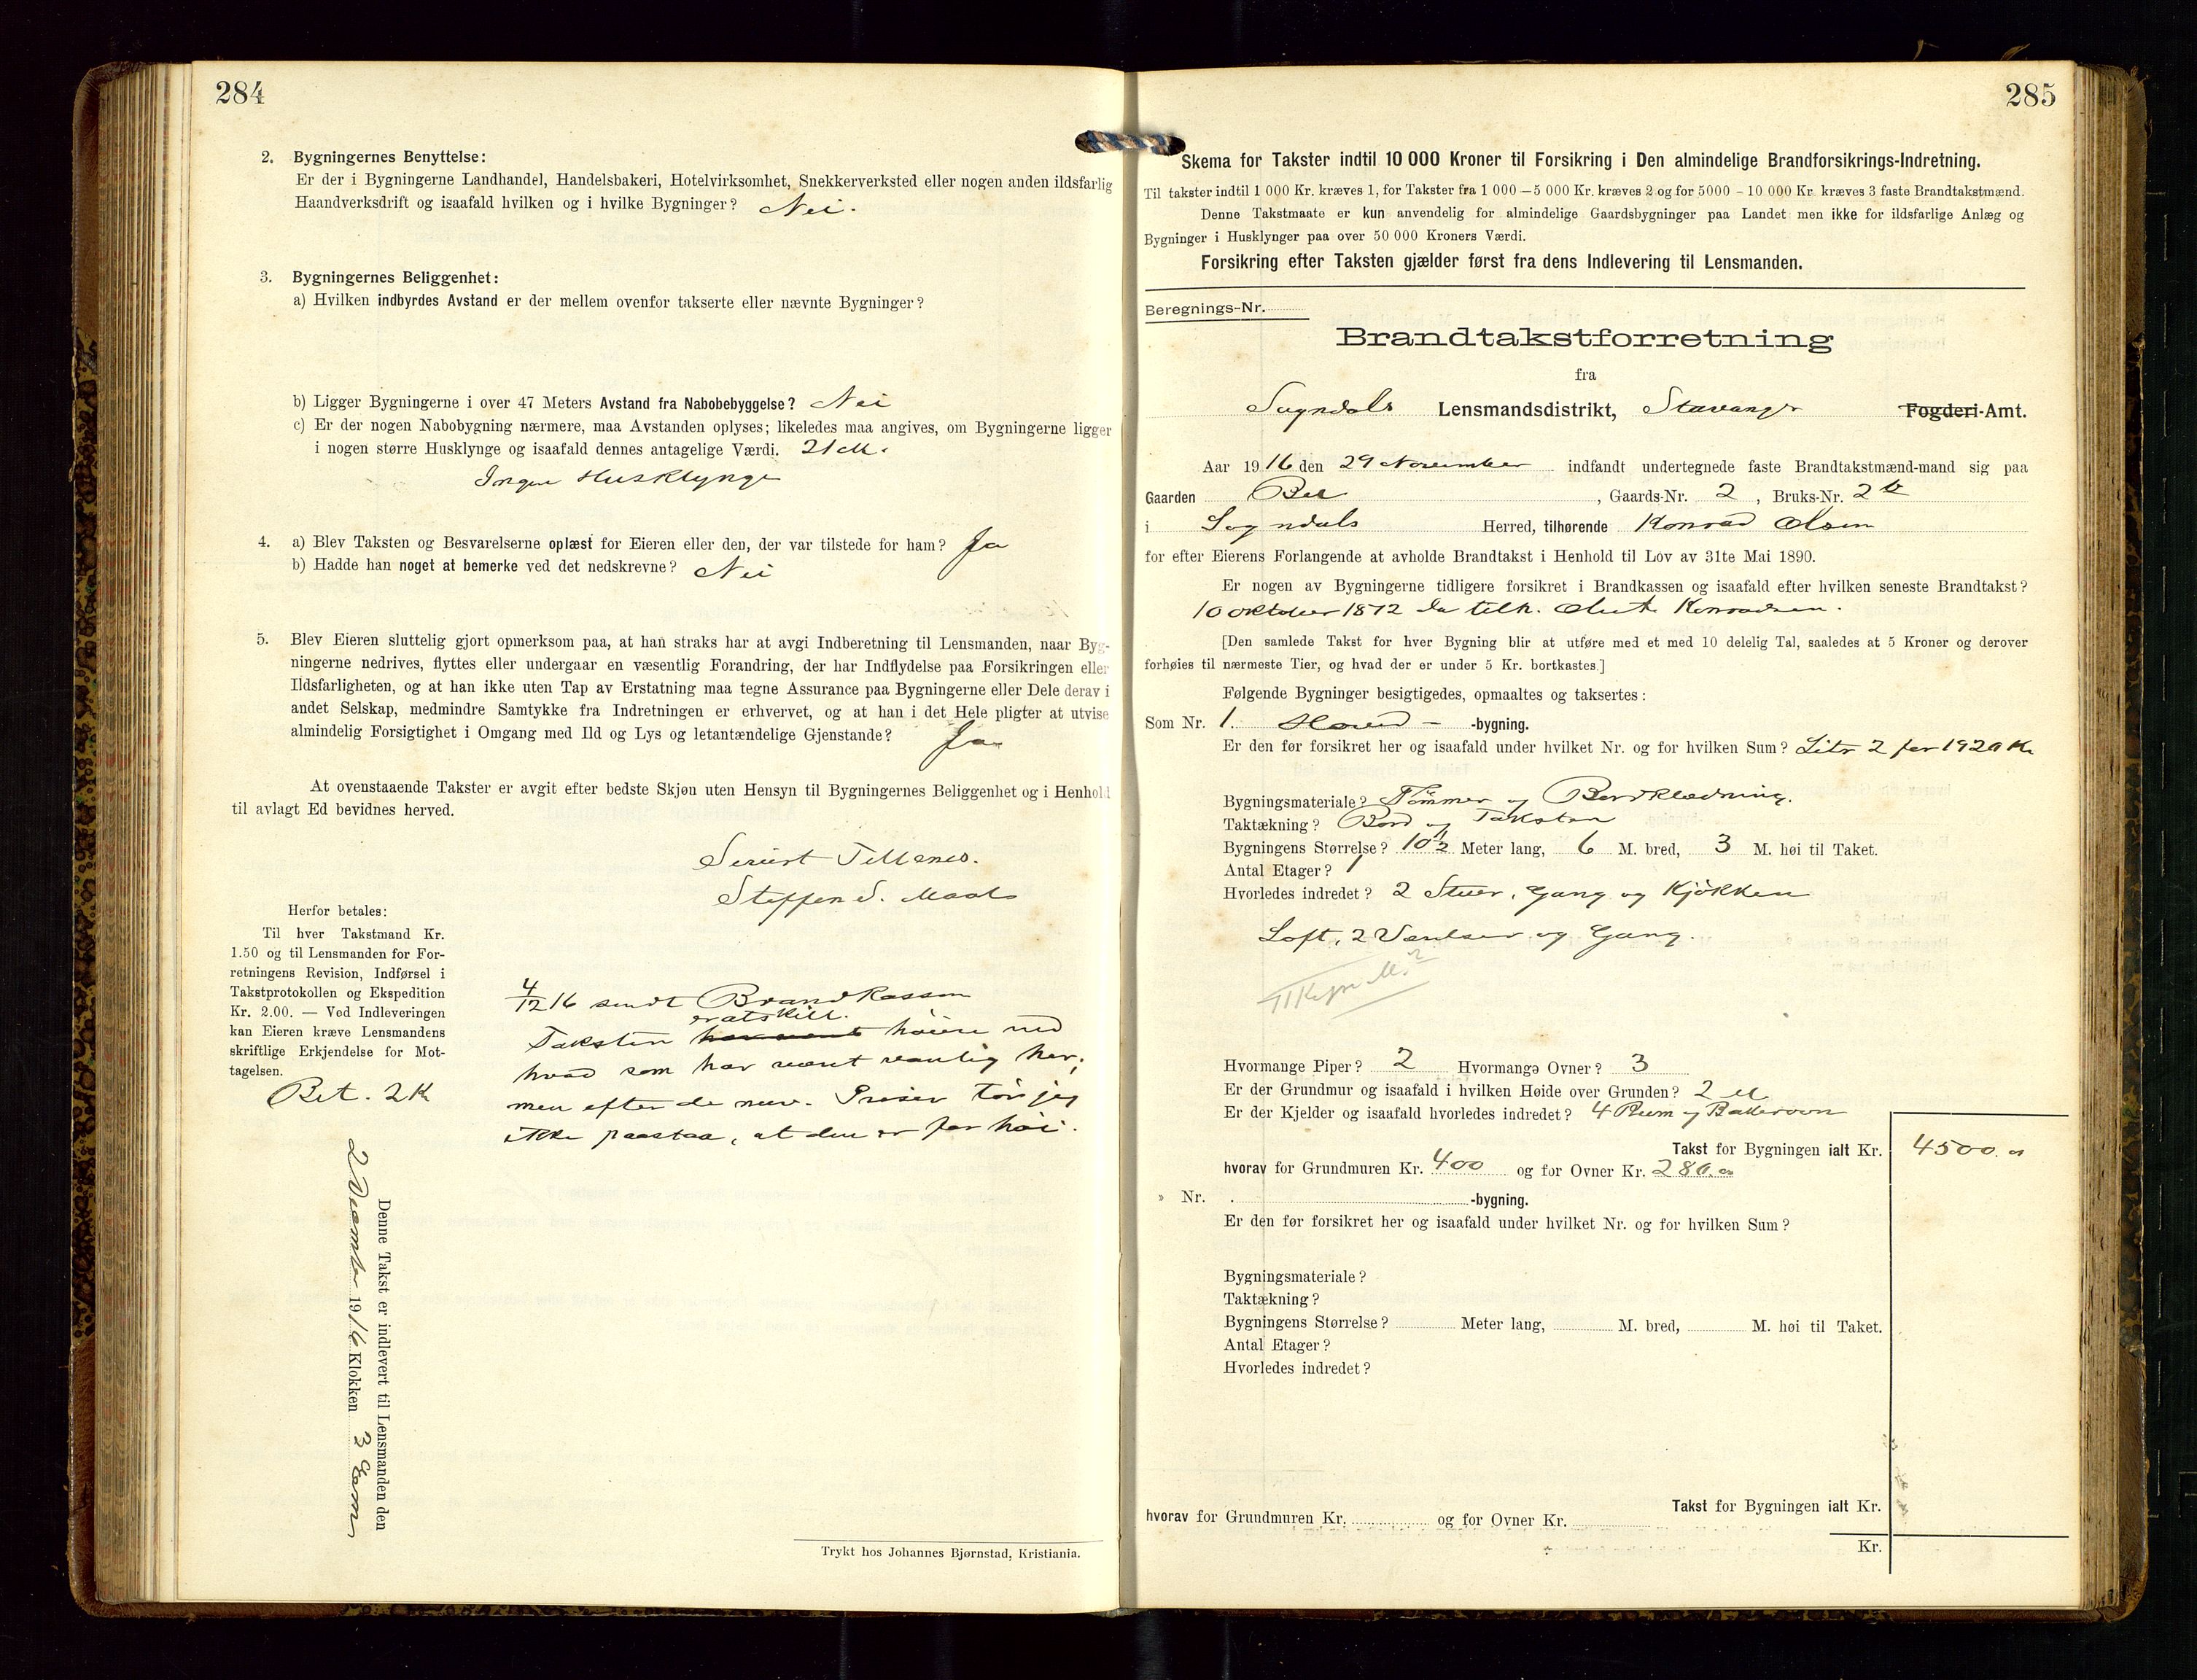 284
2. Bygningernes Benyttelse:
Er der i Bygningerne Landhandel, Handelsbakeri, Hotelvirksomhet, Snekkerverksted eller nogen anden ildsfarlig
Haandverksdrift og isaafald hvilken og i hvilke Bygninger? Nei.
3. Bygningernes Beliggenhet:
a) Hvilken indbyrdes Avstand er der mellem ovenfor takserte eller nævnte Bygninger?
b) Ligger Bygningerne i over 47 Meters Avstand fra Nabobebyggelse? Nei
c) Er der nogen Nabobygning nærmere, maa Avstanden oplyses; likeledes maa angives, om Bygningerne ligger
i nogen større Husklynge og isaafald dennes antagelige Værdi. 21 M.
Ingen Husklynge
4. a) Blev Taksten og Besvarelserne oplæst for Eieren eller den, der var tilstede for ham? Ja
b) Hadde han noget at bemerke ved det nedskrevne? Nei
5. Blev Eieren sluttelig gjort opmerksom paa, at han straks har at avgi Indberetning til Lensmanden, naar Byg-
ningerne nedrives, flyttes eller undergaar en væsentlig Forandring, der har Indflydelse paa Forsikringen eller
Ildsfarligheten, og at han ikke uten Tap av Erstatning maa tegne Assurance paa Bygningerne eller Dele derav i
andet Selskap, medmindre Samtykke fra Indretningen er erhvervet, og at han i det Hele pligter at utvise
almindelig Forsigtighet i Omgang med Ild og Lys og letantændelige Gjenstande? Ja
At ovenstaaende Takster er avgit efter bedste Skjøn uten Hensyn til Bygningernes Beliggenhet og i Henhold
til avlagt Ed bevidnes herved.
Steffen S.
Herfor betales:
Til hver Takstmand Kr.
1.50 og til Lensmanden for For-
retningens Revision, Indførsel i
Takstprotokollen og Ekspedition
Kr. 2.00. — Ved Indleveringen
kan Eieren kræve Lensmandens
skriftlige Erkjendelse for Mot-
tagelsen.
Bet. 2 K
4/12 16 sendt Brandkassen
er atskill.
Taksten har været høiere end
hvad som har været vanlig her;
men efter de nuv. Priser tør jeg
ikke paastaa, at den er for høi.
Denne Takst er indlevert til Lensmanden den
2 Deember 1916 Klokken 3 Eem
Trykt hos Johannes Bjørnstad, Kristiania.
285
Skema for Takster indtil 10 000 Kroner til Forsikring i Den almindelige Brandforsikrings-Indretning.
Til takster indtil 1 000 Kr. kræves 1, for Takster fra 1 000 — 5 000 Kr. kræves 2 og for 5000 - 10 000 Kr. kræves 3 faste Brandtakstmænd.
Denne Takstmaate er kun anvendelig for almindelige Gaardsbygninger paa Landet men ikke for ildsfarlige Anlæg og
Bygninger i Husklynger paa over 50 000 Kroners Værdi.
Forsikring efter Taksten gjælder først fra dens Indlevering til Lensmanden.
Beregnings-Nr.
Brandtakstforretning
fra
Sogndals Lensmandsdistrikt, Stavanger Fogderi-Amt.
Aar 1916 den 29 November indfandt undertegnede faste Brandtakstmænd-mand sig paa
Gaarden , Gaards-Nr. 2, Bruks-Nr. 2 b
i Sogndals Herred, tilhørende Konrad Olsen
for efter Eierens Forlangende at avholde Brandtakst i Henhold til Lov av 31te Mai 1890.
Er nogen av Bygningerne tidligere forsikret i Brandkassen og isaafald efter hvilken seneste Brandtakst?
10 oktober 1872 da tilh. Konradsen.
[Den samlede Takst for hver Bygning blir at utføre med et med 10 delelig Tal, saaledes at 5 Kroner og derover
forhøies til nærmeste Tier, og hvad der er under 5 Kr. bortkastes.]
Følgende Bygninger besigtigedes, opmaaltes og taksertes:
Som Nr. 1. Hoved- -bygning.
Er den før forsikret her og isaafald under hvilket Nr. og for hvilken Sum? Litr 2 for 1920 Kr
Bygningsmateriale? Tømmer og Bordklædning.
Taktækning? Bord og Taksten
Bygningens Størrelse? 10 1/2 Meter lang, 6 M. bred, 3 M. høi til Taket.
Antal Etager? 1
Hvorledes indredet? 2 Stuer, Gang og Kjøkken
Loft, 2 Værelser og Gang.
Hvormange Piper? 2 Hvormange Ovner? 3
Er der Grundmur og isaafald i hvilken Høide over Grunden? 2 M
Er der Kjelder og isaafald hvorledes indredet? 4 Rum og Bakerovn
Takst for Bygningen ialt Kr. 4500.00
hvorav for Grundmuren Kr. 400 og for Ovner Kr. 280.00
» Nr. -bygning.
Er den før forsikret her og isaafald under hvilket Nr. og for hvilken Sum?
Bygningsmateriale?
Taktækning?
Bygningens Størrelse? Meter lang, M. bred, M. høi til Taket.
Antal Etager?
Hvorledes indredet?
Takst for Bygningen ialt Kr.
hvorav for Grundmuren Kr. og for Ovner Kr.
Kr.